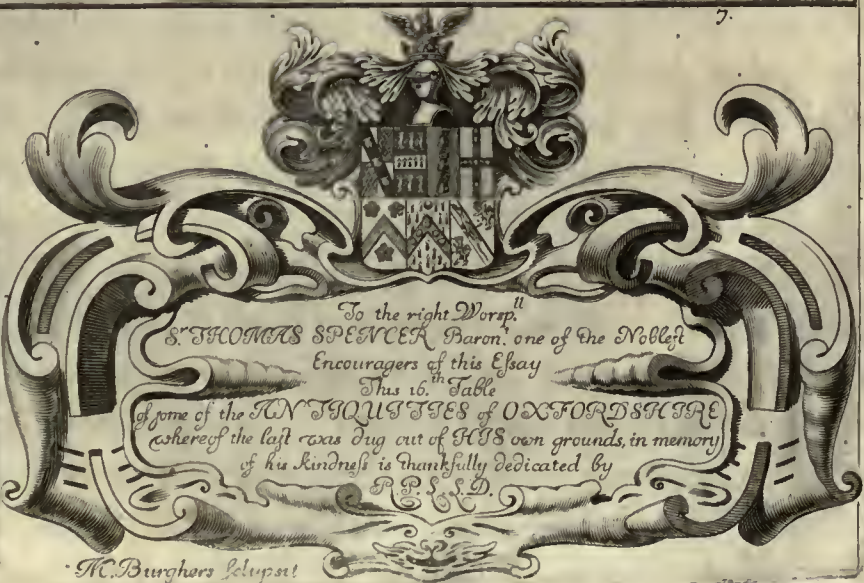 7.
To the right Worsp.ll
Sr. THOMAS SPENCER Baron.t one of the Noblest
Encouragers of this Essay
This 16.th Table
of some of the ANTIQUITIES of OXFORDSHIRE
whereof the last was dug out of HIS own grounds, in memory
of his kindness is thankfully dedicated by
R.P.L.L.D.
M. Burghers sculpsit